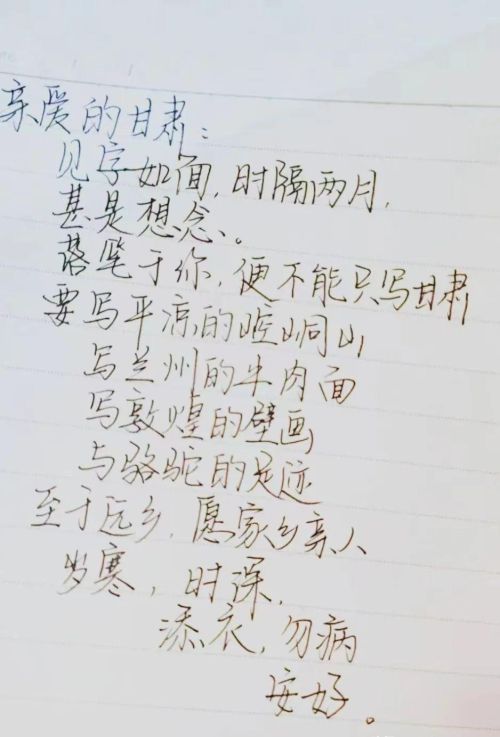 亲爱的甘肃：
见字如面，时隔两月，
甚是想念。
落笔于你，便不能只写甘肃
要写平凉的崆峒山
写兰州的牛肉面
写敦煌的壁画
与骆驼的足迹
至于远乡，愿家乡亲人
岁寒，时深，
添衣，勿病
安好。